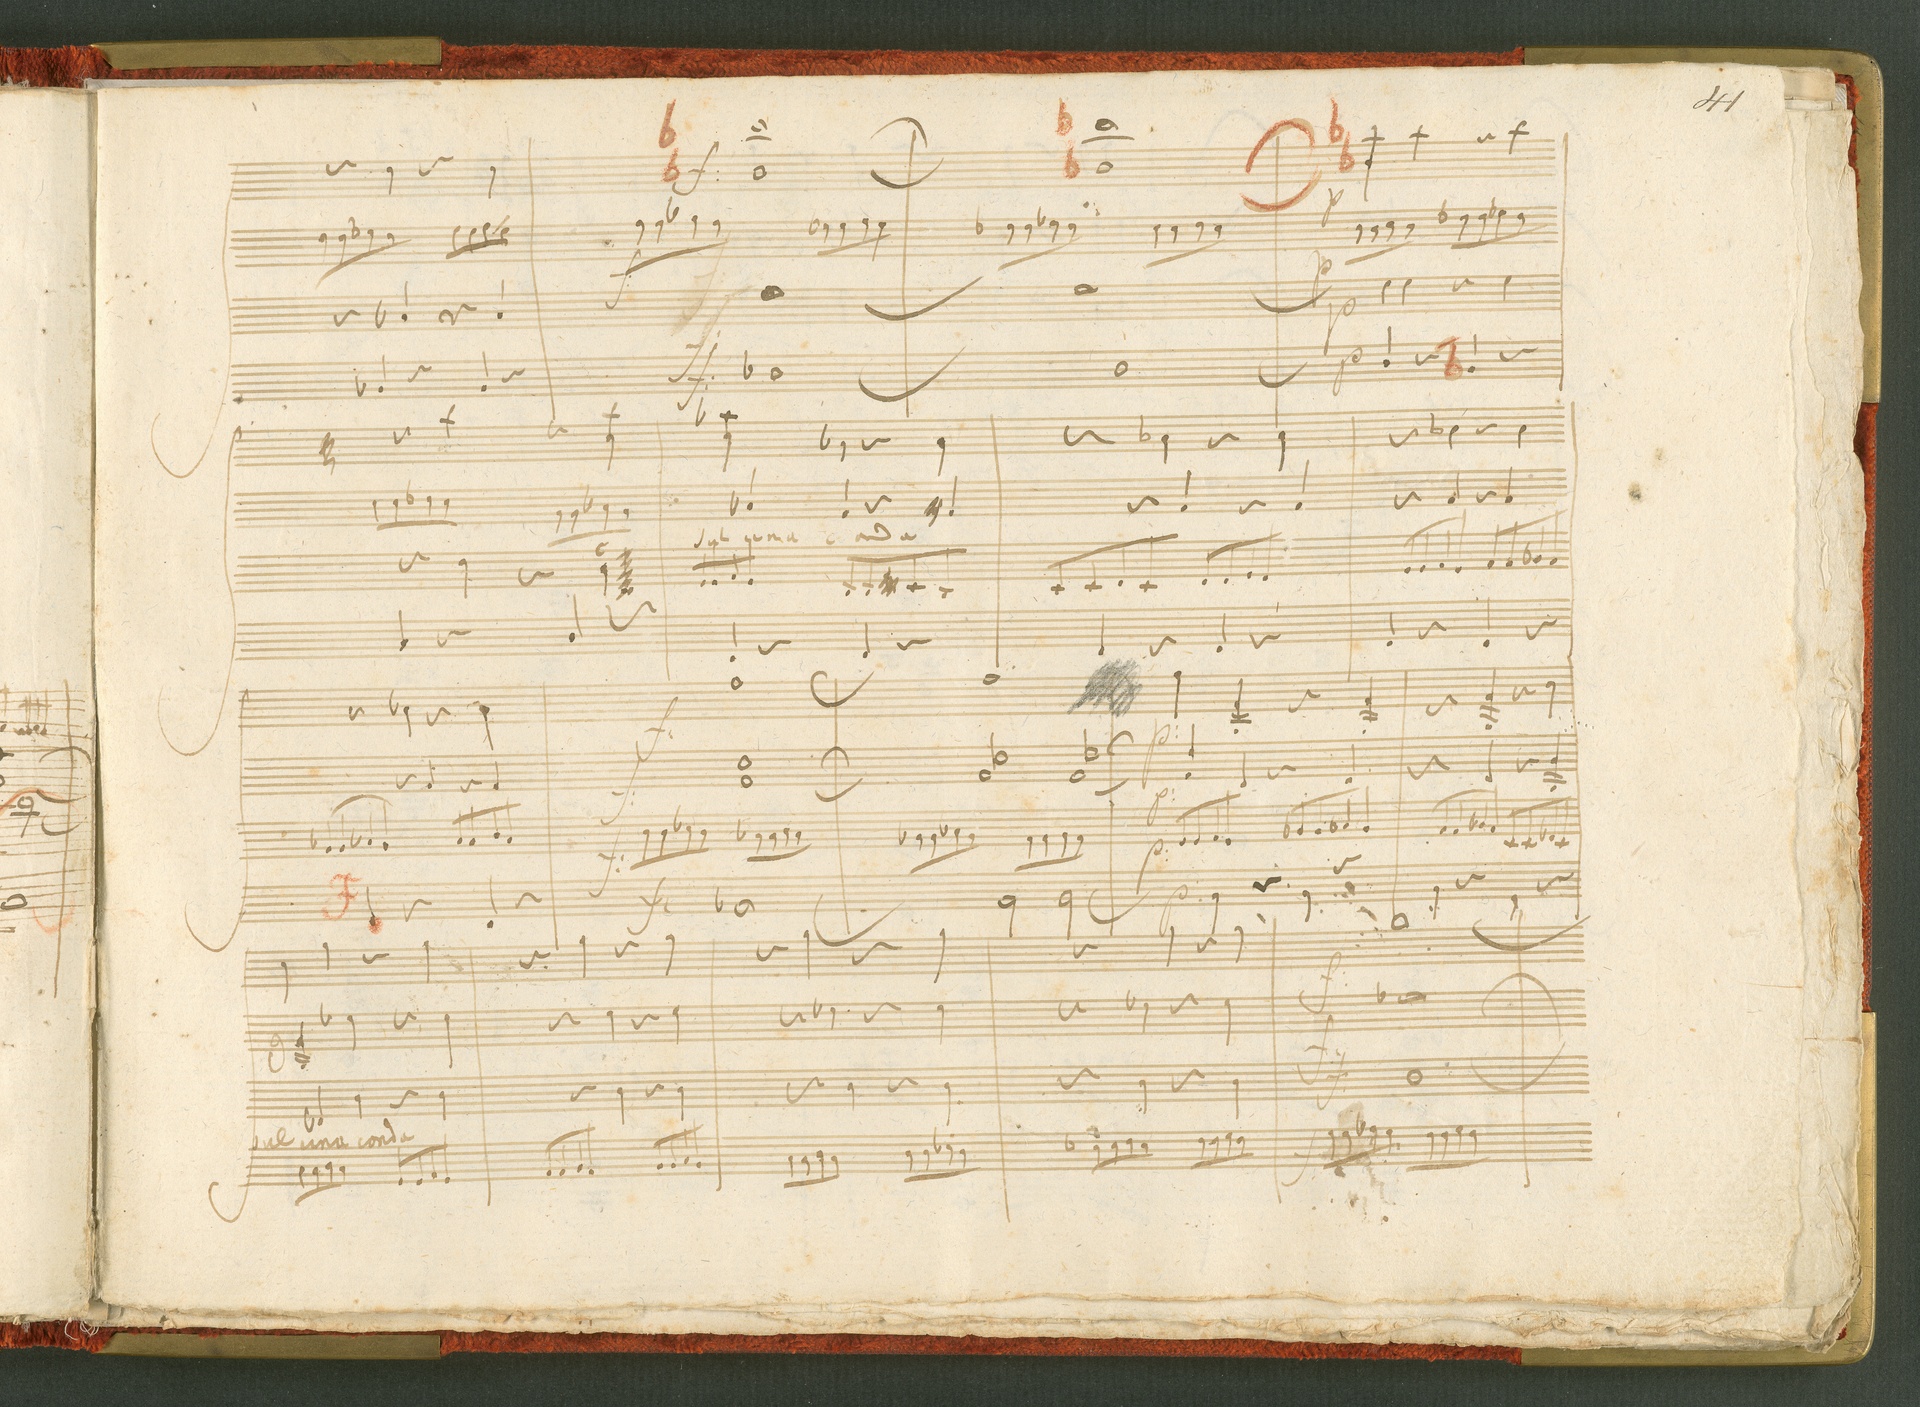 41
f:
f:
f:
p
p
sul una corda
f:
f:
f:
f:
p:
p:
p:
p:
sul una corda
f:
f:
f